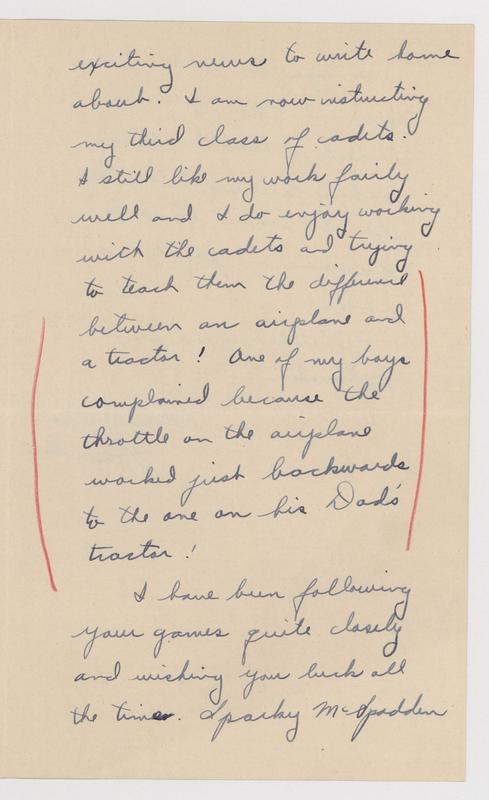 exciting news to write home
about. I am now instructing
my third class of cadets.
I still like my work fairly
well and I do enjoy working
with the cadets and trying
to teach them the difference
between an airplane and
a tractor! One of my boys
complained because the
throttle on the airplane
worked just backwards
to the one on his Dad's
tractor!
I have been following
your games quite closely
and wishing you luck all
the time. Sparky McSpadden